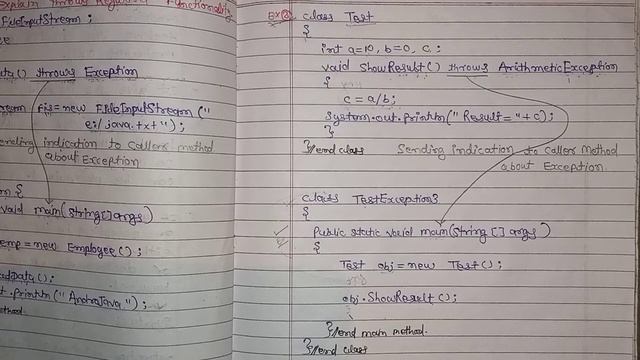 Explain throws Keyword Functionality
FileInputStream ;
throws Exception
fis=new FileInputStream("
e:/java.txt");
sending indication to callers method
about Exception
{
void main(String[]args)
emp=new Employee();
Data();
println("AndroJava");
method.
Ex② class Test
{
int a=10, b=0, c;
void ShowResult() throws ArithmeticException
{
c = a/b;
System.out.println("Result="+c);
}
}//end class Sending indication to callers Method
about Exception.
class TestException3
{
Public static void main(String [] args)
{
Test obj=new Test();
obj.ShowResult();
}//end main method.
}//end class